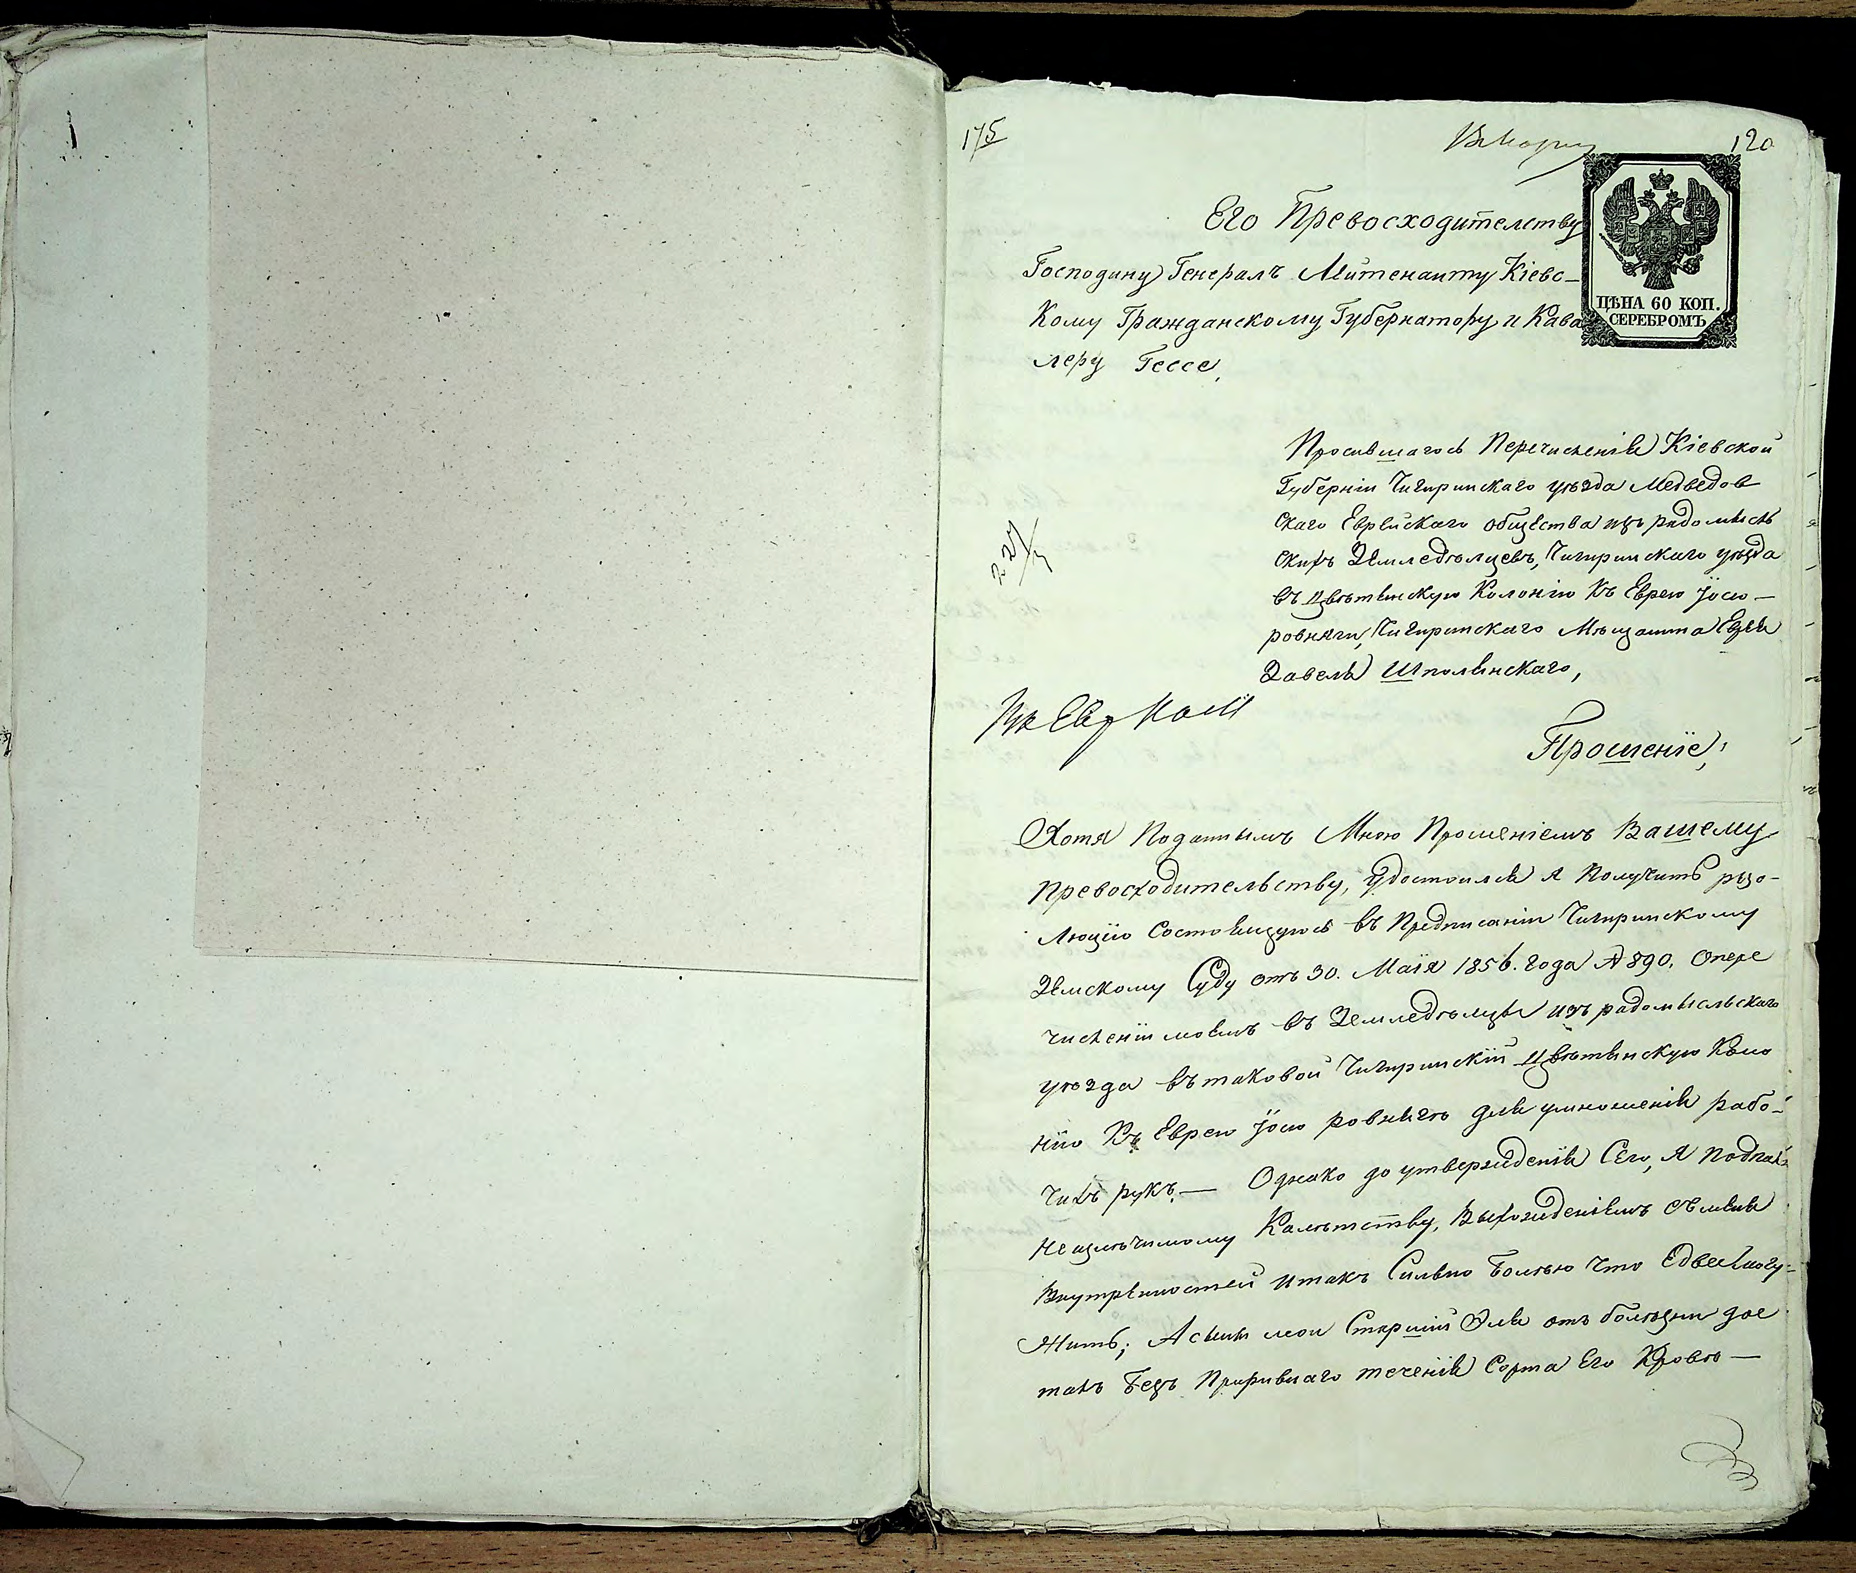 175
120
Его Превосходителству
ЦѢНА 60 КОП.
СЕРЕБРОМЪ
Господину Генералъ Лейтенанту Кіевс-
Кому Гражданскому Губернатору и Кава
леру Гессе,
Просившагось Перечисленія Кіевской
Губерніи Чигиринскаго уѣзда Медведов
скаго Еврейскаго общества изъ радомысль
скихъ Земледѣлцевъ, Чигиринскаго уѣзда
въ Цвѣтянскую Колонію Къ Еврею Іосю
ровняги, Чигиринскаго Мѣщанина
Завеля Шполянскаго,
Прошеніе,
Хотя Поданнымъ Мною Прошеніемъ Вашему
Превосходительству, удостоился я Получить резо-
люцію Состоявшуюсь въ Предписаніи Чигиринскому
Земскому Суду отъ 30. Маія 1856. года № 890, Опере
численіи моемъ въ Земледѣлцы изъ радомысльскаго
уѣзда въ таковой Чигиринскій Цвѣтянскую Коло
нію Къ Еврею Іосю ровнягѣ для умноженія рабо-
чихъ рукъ.— Однако до утвержденія Сего, я подпалъ
Неизлѣчимому Калѣтству, Выхожденіемъ
Внутренностей итакъ Сильно Болѣю Что Едва могу
Жить; А сынъ мой Старшій Эля отъ болѣзни
такъ Безъ теченія Его Кровѣ—